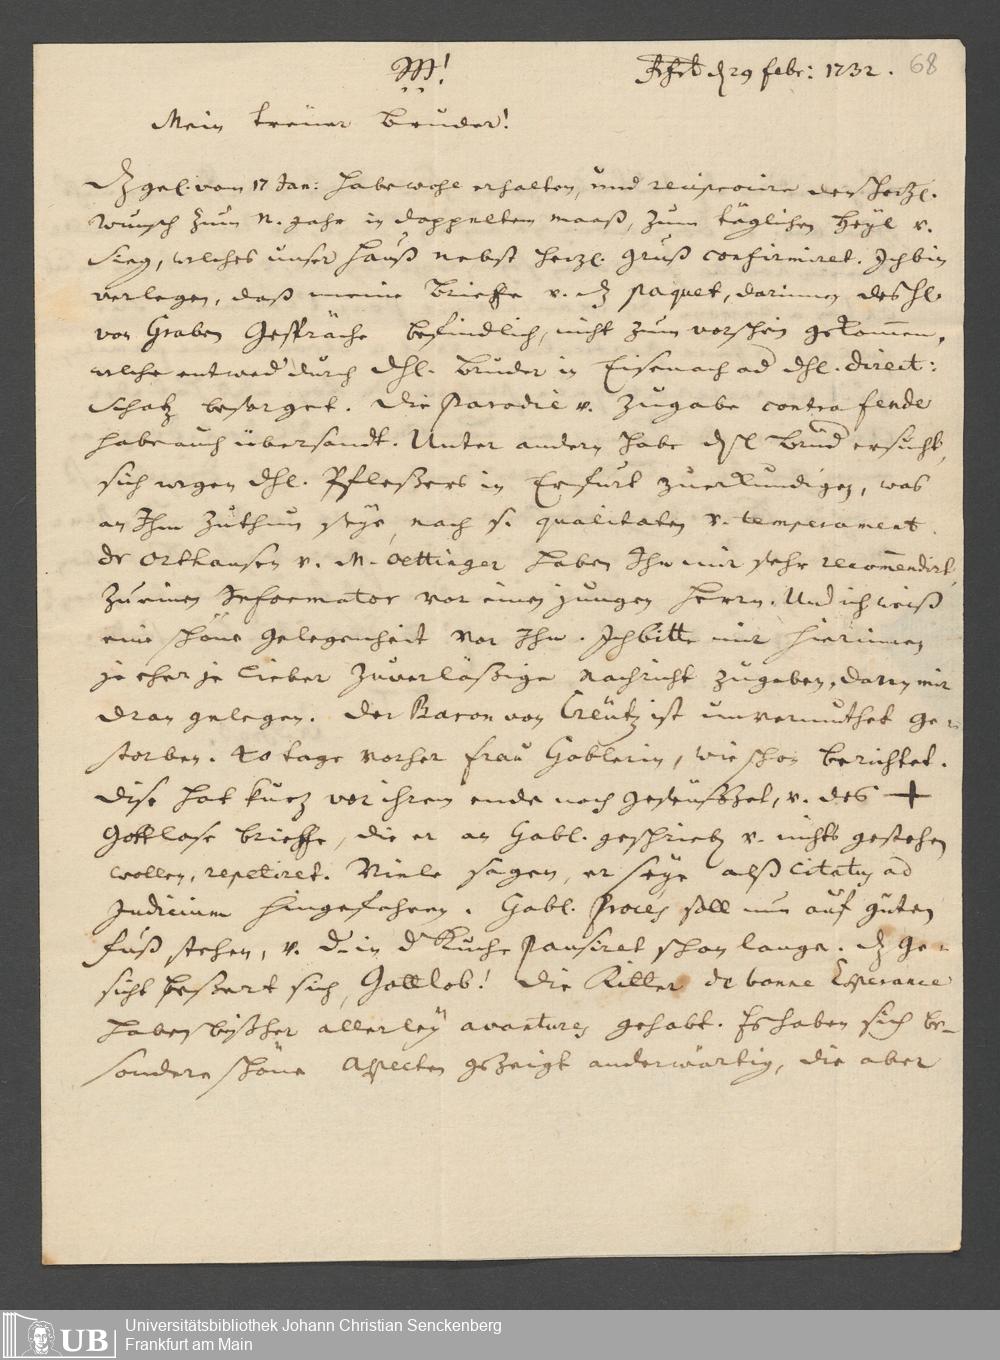 Ffrt d 29 febr: 1732. 68
Mein treuer Bruder!
Dz gel. vom 17 Jan: habe wohl erhalten, und reciprocire den hertzl.
wunsch zum N. Jahr in doppeltem maaß, zum täglichen Heyl v.
Sieg, welches unser Hauß nebst hertzl. gruß confirmiret. Ich bin
verlegen, daß meine Brieffe v. dz paquet, darinnen des hl.
von Graben Gespräche befindlich, nicht zum vorschein gekommen,
welche entwed durch dhl. Bruder in Eisenach od dhl. direct:
Schatz besorget. Die Parodie v. Zugabe contra fende
habe auch übersandt. Unter andern habe dhl Brud ersucht,
sich wegen dhl. Pfleßers in Erfurt zu erkundigen, was
an Ihm zuthun seye, nach s. qualitaten v. temperament.
dr Orthausen v. M. Oettinger haben Ihn mir sehr recommendirt
zu einen Informator vor einen jungen Herrn. Und ich weiß
eine schöne gelegenheit vor Ihn. Ich bitte mir hierinnen
je eher je lieber zuverläßige nachricht zugeben, dann mir
dran gelegen. Der Baron von Creütz ist unvermuthet ge-
storben. 40 tage vorher frau Gablerin, wie schon berichtet.
Diese hat kurz vor ihrem ende noch geseufftzet, v. des +
Gottlose brieffe, die er an Gabl. geschrieb v. nichts gestehen
wollen, repetiret. Viele sagen, er seye alß citatus ad
Judicium hingefahren. Gabl. Proceß soll nun auf guten
fuß stehen, v. d in d Kuche pausiret schon lange. dz Ge-
sicht beßert sich, Gottlob! Die Ritter de bonne Esperance
haben bißher allerley avantures gehabt. Es haben sich be-
sondere schöne Aspecten gezeigt anderwärtig, die aber
UB Universitätsbibliothek Johann Christian Senckenberg
Frankfurt am Main